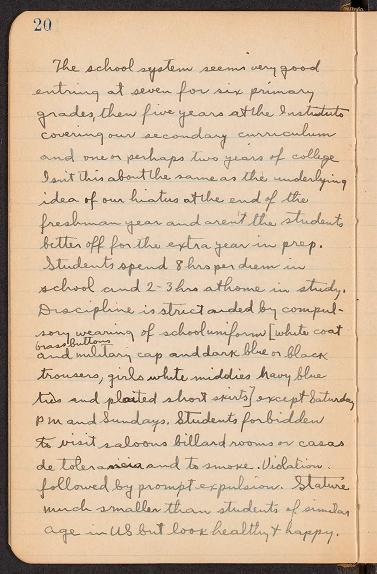 20
The school system seems very good
entring at seven for six primary
grades, then five years at the Instituto
covering our secondary curriculum
and one or perhaps two years of college
Isn't this about the same as the underlying
idea of our hiatus at the end of the
freshman year and aren't the students
better off for the extra year in prep.
Students spend 8 hrs per diem in
school and 2-3 hrs at home in study.
Discipline is strict aided by compul-
sory wearing of school uniform [white coat
brass buttons
and military cap and dark blue or black
trousers, girls white middies navy blue
ties and plaited short skirts] except Saturday
PM and Sundays. Students forbidden
to visit saloons billard rooms or casas
de tolerancia and to smoke. Violation
followed by prompt expulsion. Stature
much smaller than students of similar
age in US but look healthy + happy.